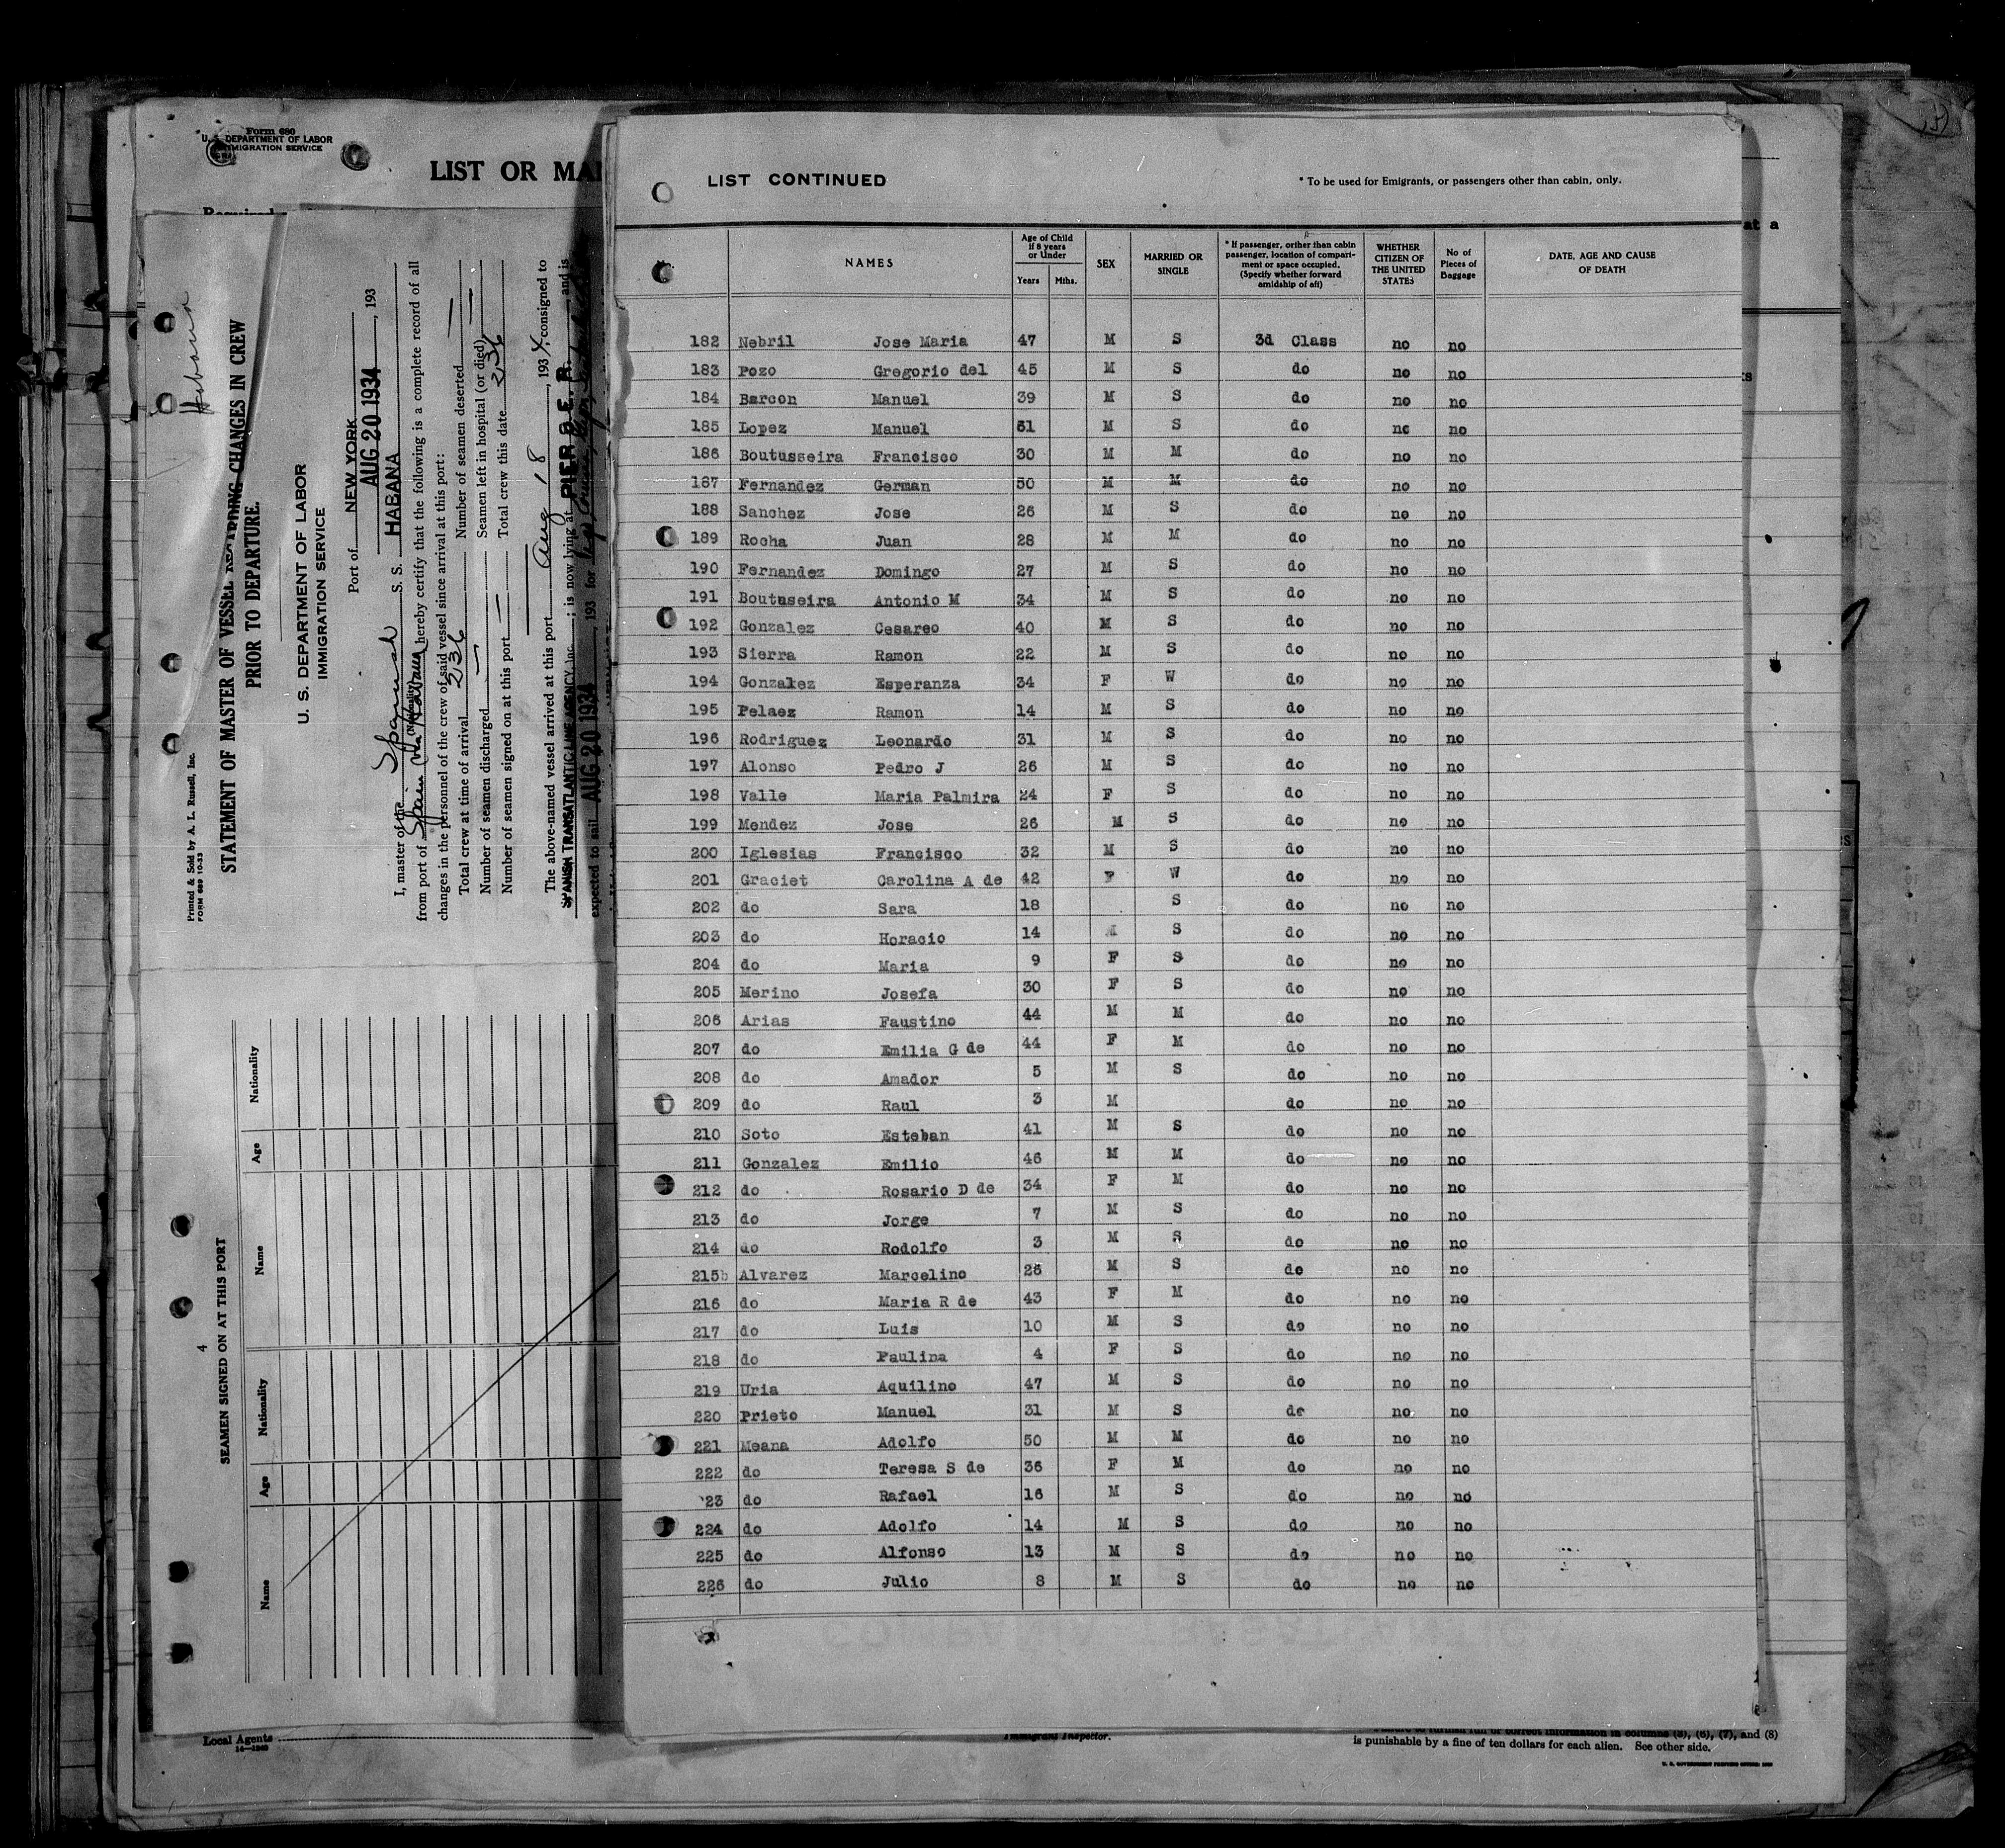 Form 680
U. S. DEPARTMENT OF LABOR
IMMIGRATION SERVICE
LIST OR MA
Required
Habana
Printed & Sold by A. L. Russell, Inc.
FORM 689 10-33
STATEMENT OF MASTER OF VESSEL REGARDING CHANGES IN CREW
PRIOR TO DEPARTURE.
U. S. DEPARTMENT OF LABOR
IMMIGRATION SERVICE
Port of NEW YORK
AUG 20 1934, 193
I, master of the Spanish S. S. HABANA
from port of Spain via Havana hereby certify that the following is a complete record of all
changes in the personnel of the crew of said vessel since arrival at this port:
Total crew at time of arrival 236 Number of seamen deserted —
Number of seamen discharged — Seamen left in hospital (or died) —
Number of seamen signed on at this port — Total crew this date 236
The above-named vessel arrived at this port Aug 18, 1934, consigned to
SPANISH TRANSATLANTIC LINE AGENCY, Inc. ; is now lying at PIER 8 E. R. and is
expected to sail AUG 20 1934, 193 for
4
SEAMEN SIGNED ON AT THIS PORT
Name Age Nationality Name Age Nationality
Local Agents
14—1240
LIST CONTINUED
* To be used for Emigrants, or passengers other than cabin, only.
NAMES
Age of Child if 8 years or Under
Years Mths.
SEX
MARRIED OR SINGLE
* If passenger, orither than cabin passenger, location of compartiment or space occupied, (Specify whether forward amidship of aft)
WHETHER CITIZEN OF THE UNITED STATES
No of Pieces of Baggage
DATE, AGE AND CAUSE OF DEATH
182 Nebril Jose Maria 47 M S 3d Class no no
183 Pozo Gregorio del 45 M S do no no
184 Barcon Manuel 39 M S do no no
185 Lopez Manuel 31 M S do no no
186 Boutusseira Francisco 30 M M do no no
187 Fernandez German 50 M M do no no
188 Sanchez Jose 26 M S do no no
189 Rocha Juan 28 M M do no no
190 Fernandez Domingo 27 M S do no no
191 Boutuseira Antonio M 34 M S do no no
192 Gonzalez Cesareo 40 M S do no no
193 Sierra Ramon 22 M S do no no
194 Gonzalez Esperanza 34 F W do no no
195 Pelaez Ramon 14 M S do no no
196 Rodriguez Leonardo 31 M S do no no
197 Alonso Pedro J 26 M S do no no
198 Valle Maria Palmira 24 F S do no no
199 Mendez Jose 26 M S do no no
200 Iglesias Francisco 32 M S do no no
201 Graciet Carolina A de 42 F W do no no
202 do Sara 18 S do no no
203 do Horacio 14 M S do no no
204 do Maria 9 F S do no no
205 Merino Josefa 30 F S do no no
206 Arias Faustino 44 M M do no no
207 do Emilia G de 44 F M do no no
208 do Amador 5 M S do no no
209 do Raul 3 M do no no
210 Soto Esteban 41 M S do no no
211 Gonzalez Emilio 46 M M do no no
212 do Rosario D de 34 F M do no no
213 do Jorge 7 M S do no no
214 do Rodolfo 3 M S do no no
215b Alvarez Marcelino 28 M S do no no
216 do Maria R de 43 F M do no no
217 do Luis 10 M S do no no
218 do Paulina 4 F S do no no
219 Uria Aquilino 47 M S do no no
220 Prieto Manuel 31 M S do no no
221 Meana Adolfo 50 M M do no no
222 do Teresa S de 36 F M do no no
223 do Rafael 16 M S do no no
224 do Adolfo 14 M S do no no
225 do Alfonso 13 M S do no no
226 do Julio 8 M S do no no
at a
Immigrant Inspector.
Failure to furnish full or correct information in columns (3), (6), (7), and (8)
is punishable by a fine of ten dollars for each alien. See other side.